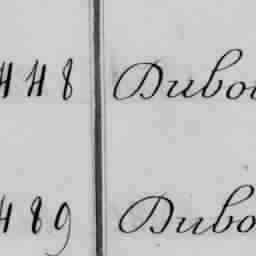 448 Dubo
489 Dubo